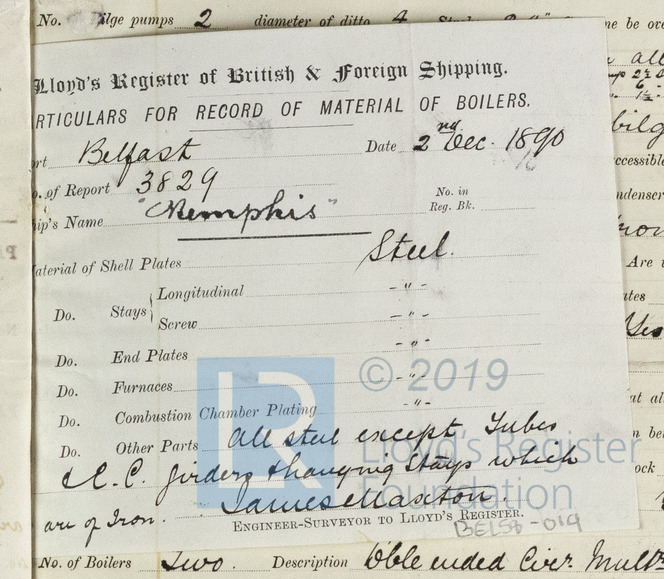 No. ilge pumps 2 diameter of ditto 4
me be ove
Lloyd's Register of British & Foreign Shipping.
RTICULARS FOR RECORD OF MATERIAL OF BOILERS.
ort Belfast Date 2nd Dec. 1890
o. of Report 3829 No. in Reg. Bk.
hip's Name "Memphis"
Material of Shell Plates Steel.
Do. Stays { Longitudinal -"-
Screw -"-
Do. End Plates -"-
Do. Furnaces -"-
Do. Combustion Chamber Plating -"-
Do. Other Parts All steel except Tubes
& C. C. girders & hanging Stays which
are of Iron. James Maxton.
ENGINEER-SURVEYOR TO LLOYD'S REGISTER.
BEL58-019
No. of Boilers Two. Description Dble ended Circr Mult
all
bilg
ccessible
ndenser
Are i
ates
Yes
at al
ock
LR
© 2019
Lloyd's Register
Foundation